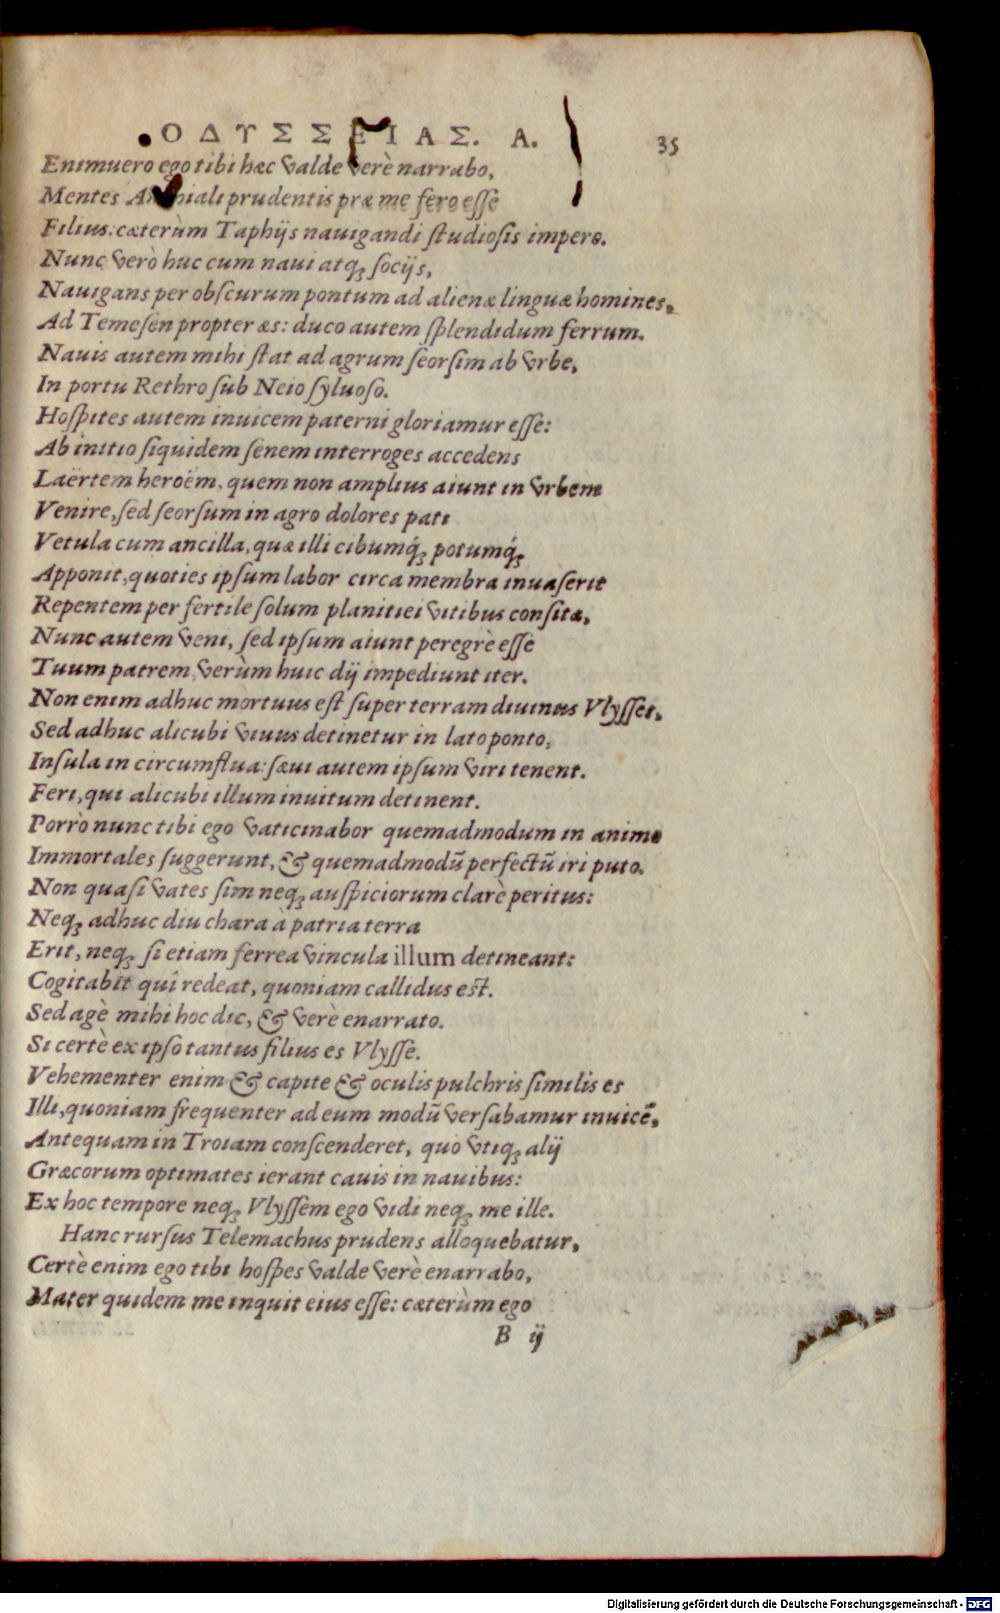 ΟΔΥΣΣΕΙΑΣ. Α. 35
Enimuero ego tibi hæc valde verè narrabo,
Mentes prudentis præ me fero esse
Filius: cæterùm Taphijs nauigandi studiosis impero.
Nunc verò huc cum naui atq; socijs,
Nauigans per obscurum pontum ad alienæ linguæ homines.
Ad Temesen propter æs: duco autem splendidum ferrum.
Nauis autem mihi stat ad agrum seorsim ab vrbe,
In portu Rethro sub Neio syluoso.
Hospites autem inuicem paterni gloriamur esse:
Ab initio siquidem senem interroges accedens
Laërtem heroëm, quem non amplius aiunt in vrbem
Venire, sed seorsum in agro dolores pati
Vetula cum ancilla, quæ illi cibumq́; potumq́;
Apponit, quoties ipsum labor circa membra inuaserit
Repentem per fertile solum planitiei vitibus consitæ,
Nunc autem veni, sed ipsum aiunt peregrè esse
Tuum patrem, verùm huic dij impediunt iter.
Non enim adhuc mortuus est super terram diuinus Vlysses,
Sed adhuc alicubi viuus detinetur in lato ponto,
Insula in circumflua: sæui autem ipsum viri tenent.
Feri, qui alicubi illum inuitum detinent.
Porrò nunc tibi ego vaticinabor quemadmodum in animo
Immortales suggerunt, & quemadmodū perfectū iri puto.
Non quasi vates sim neq; auspiciorum clarè peritus:
Neq; adhuc diu chara à patria terra
Erit, neq; si etiam ferrea vincula illum detineant:
Cogitabit quî redeat, quoniam callidus est.
Sed agè mihi hoc dic, & verè enarrato.
Si certè ex ipso tantus filius es Vlysse.
Vehementer enim & capite & oculis pulchris similis es
Illi, quoniam frequenter ad eum modū versabamur inuicē,
Antequam in Troiam conscenderet, quò vtiq; alij
Græcorum optimates ierant cauis in nauibus:
Ex hoc tempore neq; Vlyssem ego vidi neq; me ille.
Hanc rursus Telemachus prudens alloquebatur,
Certè enim ego tibi hospes valde verè enarrabo,
Mater quidem me inquit eius esse: cæterùm ego
B ij
Digitalisierung gefördert durch die Deutsche Forschungsgemeinschaft - DFG